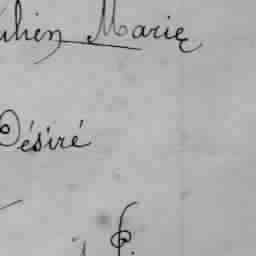 ulien Marie
Désiré